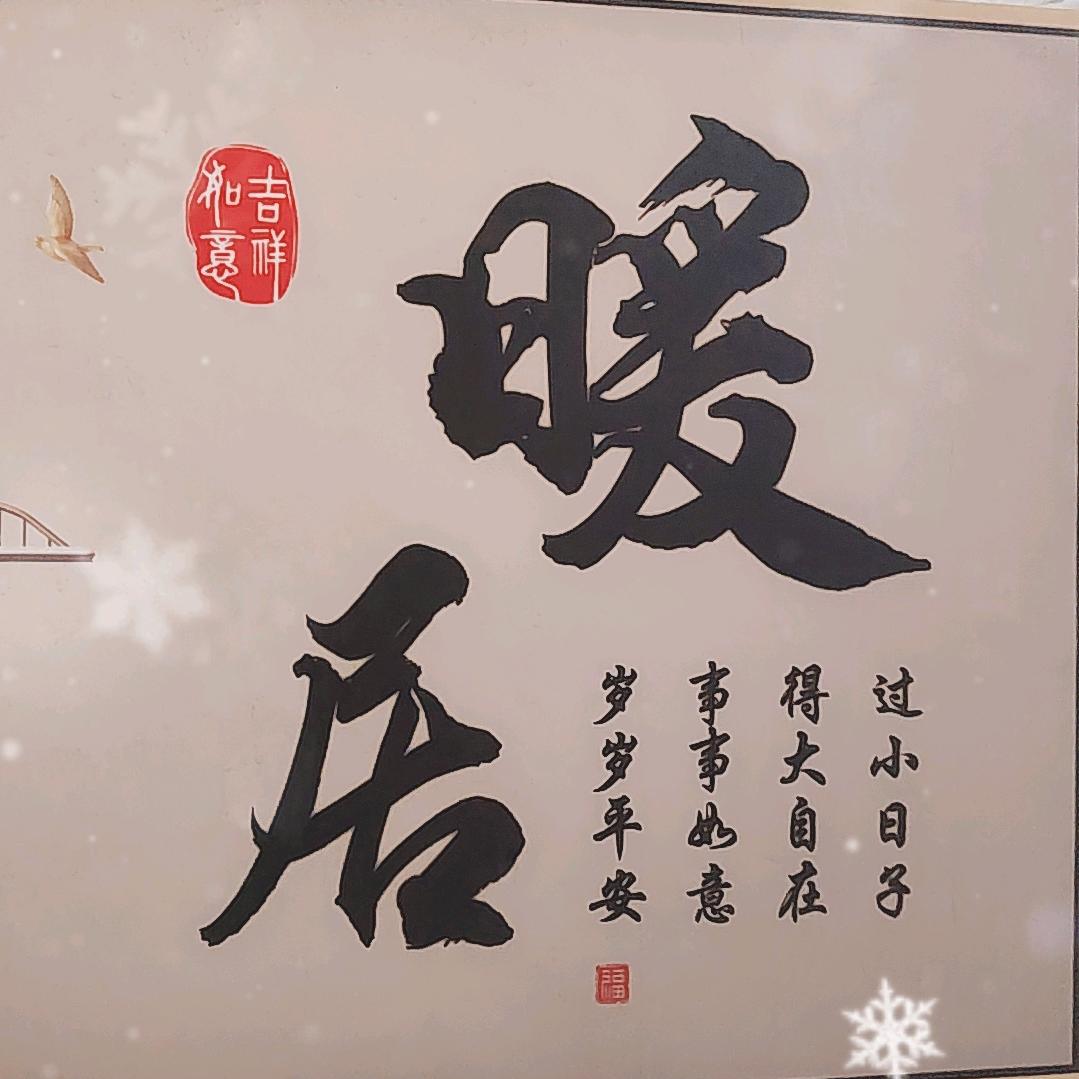 暖居
过小日子
得大自在
事事如意
岁岁平安
吉祥
如意
福